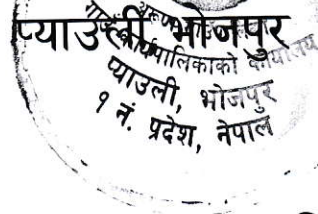 प्याउली, भोजपुर
गाउँकार्यपालिकाको कार्यालय
प्याउली, भोजपुर
१ नं. प्रदेश, नेपाल